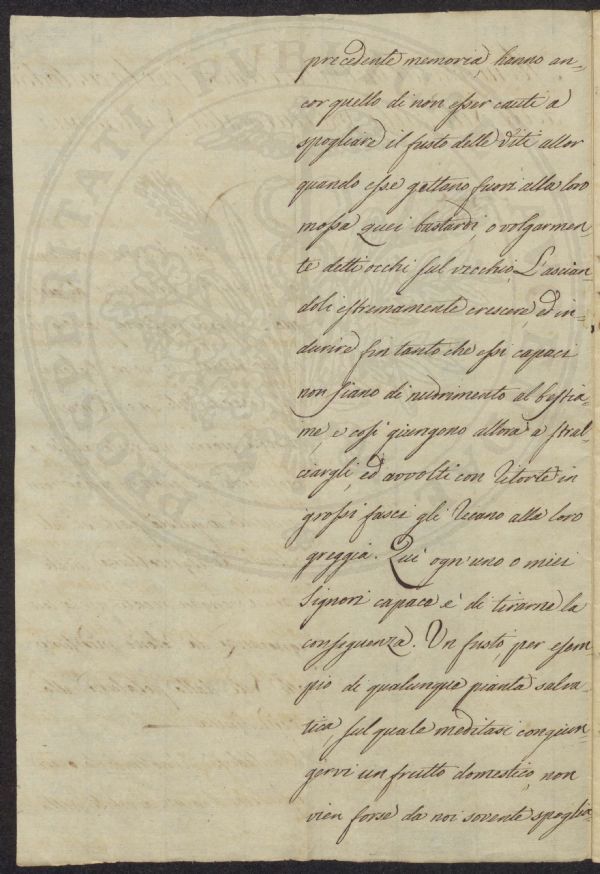 precedente memoria hanno an=
cor quello di non esser cauti a
spogliare il fusto delle Viti allor
quando esse gettano fuori alla loro
mossa quei bastardi, o volgarmen=
te detti occhi sul vecchio, Lascian=
doli estremamente crescere, ed in=
durire fin tanto che essi capaci
non siano di nudrimento al bestia=
me, e così giungono allora a stral=
ciargli, ed avvolti con Ritorte in
grossi fasci gli recano alla loro
greggia. Qui ogn'uno o miei
Signori capace è di tirarne la
conseguenza. Un fusto, per esem=
pio di qualunque pianta salva=
tica, sul quale meditasi congiun=
gervi un frutto domestico, non
vien forse da noi sovente spoglia=